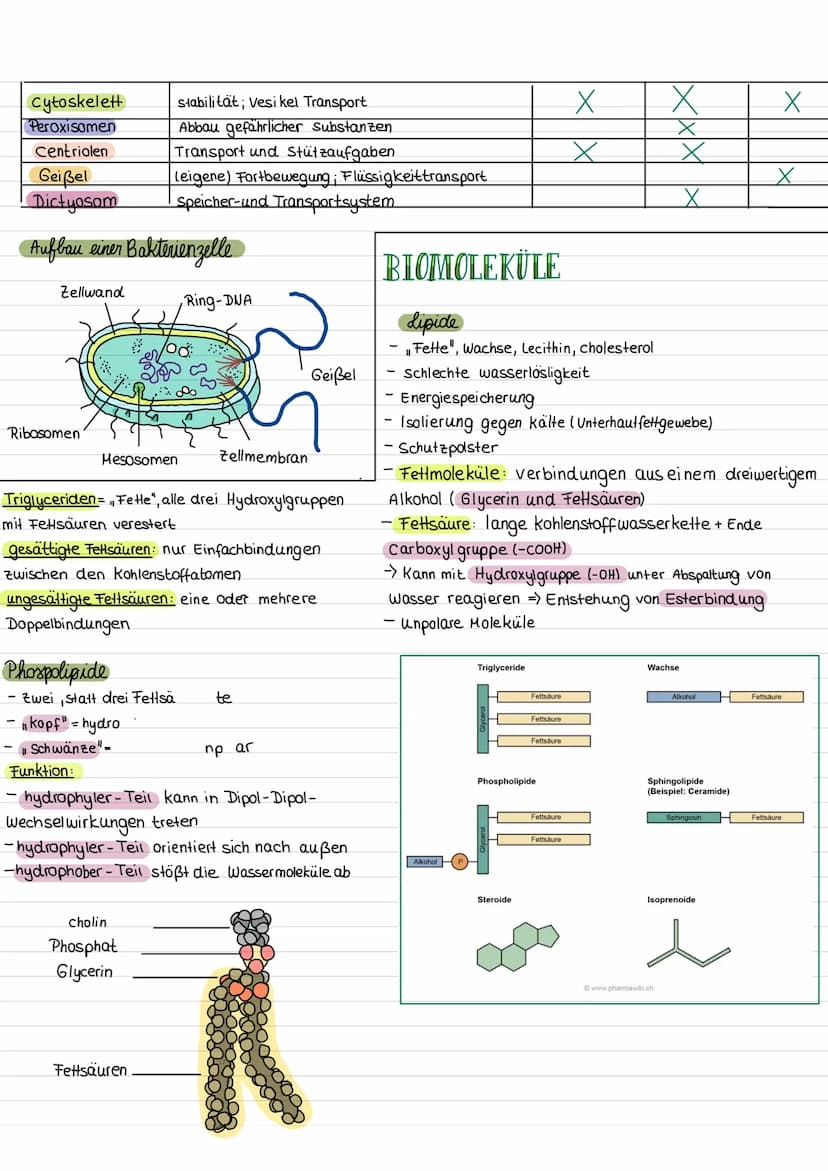 Cytoskelett stabilität; Vesikel Transport X X X
Peroxisomen Abbau gefährlicher Substanzen X
Centriolen Transport und Stützaufgaben X X
Geißel (eigene) Fortbewegung; Flüssigkeittransport X
Dictyosom Speicher-und Transportsystem X
Aufbau einer Bakterienzelle
Zellwand
Ring-DNA
Geißel
Ribosomen
Mesosomen
Zellmembran
BIOMOLEKÜLE
Lipide
- „Fette", Wachse, Lecithin, cholesterol
- schlechte wasserlösligkeit
- Energiespeicherung
- Isolierung gegen kälte (Unterhautfettgewebe)
- Schutzpolster
- Fettmoleküle: verbindungen aus einem dreiwertigem
Alkohol (Glycerin und Fettsäuren)
- Fettsäure: lange kohlenstoffwasserkette + Ende
Carboxylgruppe (-COOH)
-> Kann mit Hydroxylgruppe (-OH) unter Abspaltung von
Wasser reagieren => Entstehung von Esterbindung
- unpolare Moleküle
Triglyceriden= „Fette", alle drei Hydroxylgruppen
mit Fettsäuren verestert
gesättigte Fettsäuren: nur Einfachbindungen
zwischen den Kohlenstoffatomen
ungesältigte Fettsäuren: eine oder mehrere
Doppelbindungen
Phospolipide
- zwei, statt drei Fettsä te
- „kopf" = hydro
- „Schwänze" = np ar
Funktion:
- hydrophyler-Teil kann in Dipol-Dipol-
Wechselwirkungen treten
- hydrophyler-Teil orientiert sich nach außen
- hydrophober-Teil stößt die Wassermoleküle ab
cholin
Phosphat
Glycerin
Fettsäuren
Triglyceride
Glycerol
Fettsäure
Fettsäure
Fettsäure
Wachse
Alkohol Fettsäure
Phospholipide
Glycerol
Fettsäure
Fettsäure
Alkohol P
Sphingolipide
(Beispiel: Ceramide)
Sphingosin Fettsäure
Steroide
Isoprenoide
© www.pharmawiki.ch